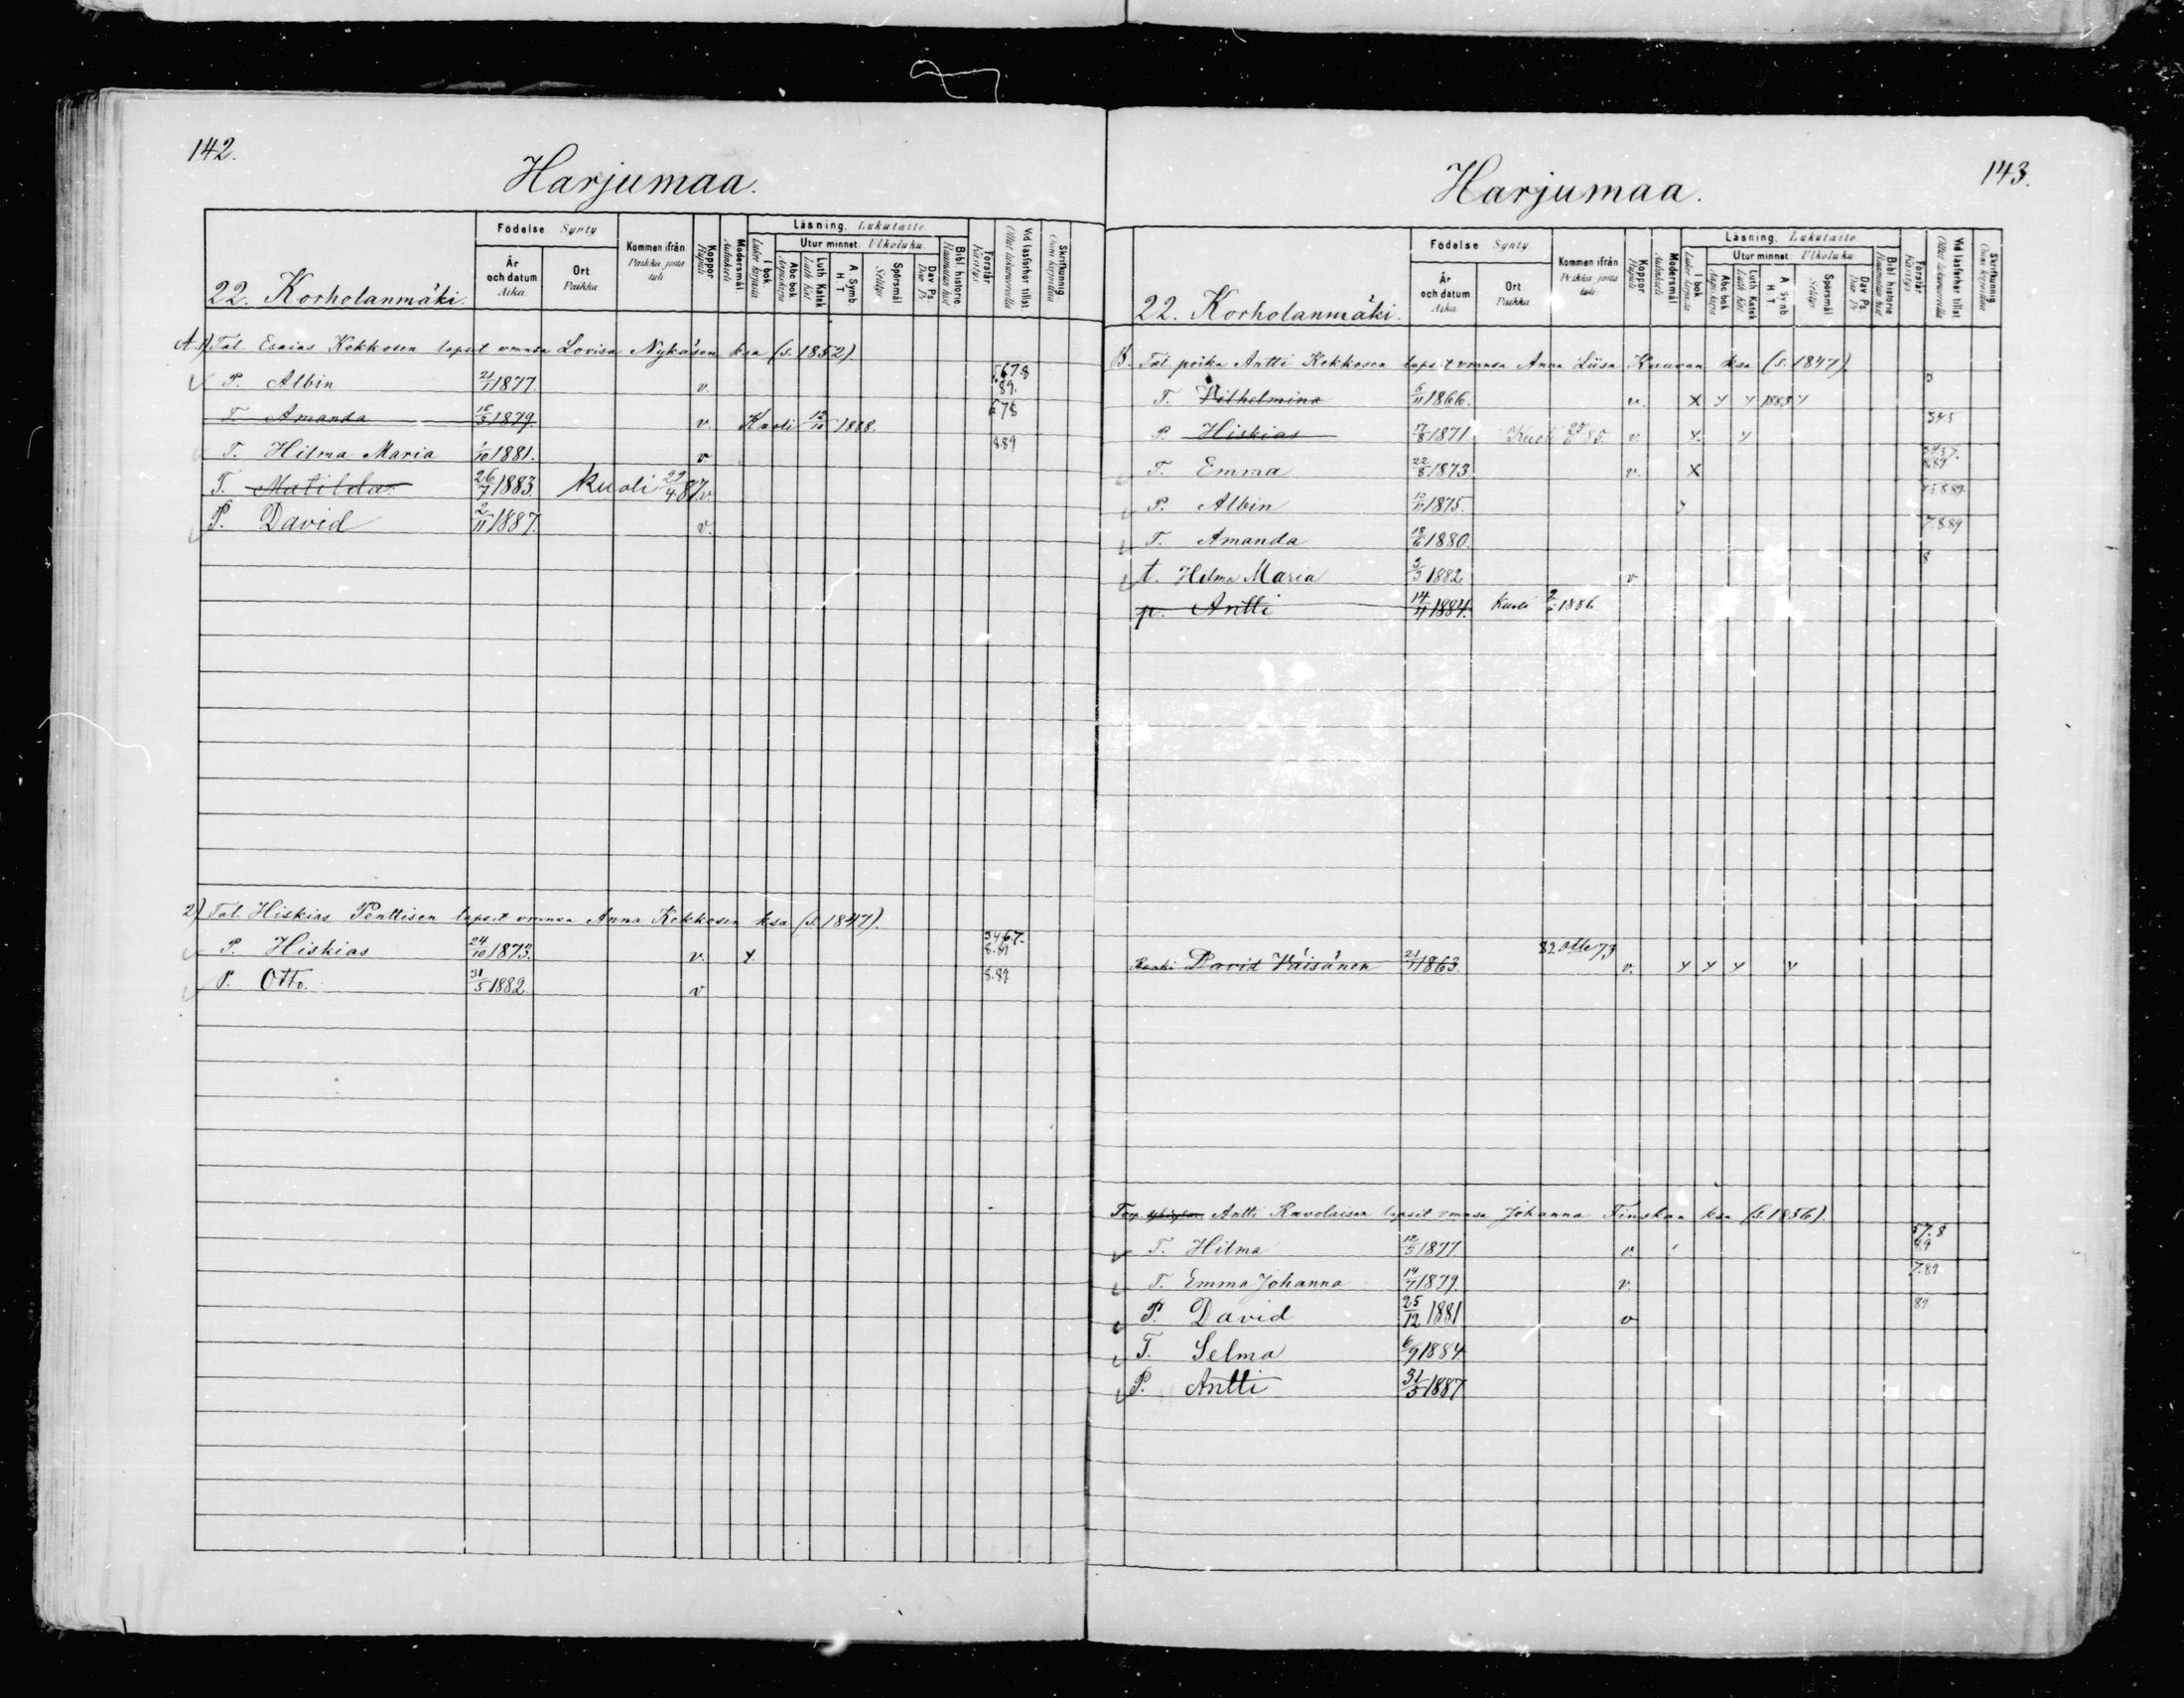 142.
Harjumaa.
22. Korholanmäki.
Födelse Synty
År och datum Aika
Ort Paikka
Kommen ifrån Paikka josta tuli
Koppor Rupuli
Modersmål. Äidinkieli
Läsning. Lukutaito
I bok
Utur minnet: Ulkoluku
Abc bok
Luth Katek
A Symb. H T
Spörsmål
Dav Ps
Bibl. historie
Förstår Käsitys
Vid läsförhör tillst.
Skrifkunnig
A. 1) Tal. Esaias Kokkosen lapset vmnsa Lovisa Nykäsen ksa (s. 1852)
P. Albin 21/1 1877. v. 5678 89.
T. Amanda 15/3 1879. v. Kuoli 12/11 1888. 678
T. Hilma Maria 1/10 1881. v. 889
T. Matilda 26/7 1883. Kuoli 29/4 87. v.
P. David 2/11 1887. v.
2) Tal. Hiskias Penttisen lapset vmnsa Anna Kokkosen ksa (s. 1847).
P. Hiskias 24/10 1873. v. y. 3467. 8.89
P. Otto. 31/5 1882. v 8.89
143.
Harjumaa.
22. Korholanmäki.
Födelse Synty
År och datum Aika
Ort Paikka
Kommen ifrån Paikka josta tuli
Koppor Rupuli
Modersmål Äidinkieli
Läsning. Lukutaito
I bok
Utur minnet: Ulkoluku
Abc bok
Luth Katek
A Symb H T
Spörsmål
Dav Ps
Bibl historie
Förstår Käsitys
Vid läsförhör tillst
Skrifkunnig
B. Tal. poika Antti Kokkosen lapset vmnsa Anna Liisa Kuuvan ksa (s. 1847)
T. Vilhelmina 5/11 1866. v. x y y 1883 y 3
P. Hiskias 17/8 1871. Kuoli 25/6 85. v. y. y 343
T. Emma 22/8 1873 v. x 3457. 889
P. Albin 12/11 1875. y 45889
T. Amanda 18/6 1880. 7.889
t. Hilma Maria 3/3 1882 v 8
p. Antti 14/11 1884. Kuoli 2/6 1886
David Väisänen 21/11 1863. 82 73 v. y y y y
Antti Ravolaisen lapset vmnsa Johanna Tinskan ksa (s. 1856).
T. Hilma 12/5 1877 v. 57.8 89
T. Emma Johanna 19/7 1879. v. 7.89
P. David 25/12 1881 v 89
T. Selma 6/9 1884
P. Antti 31/5 1887